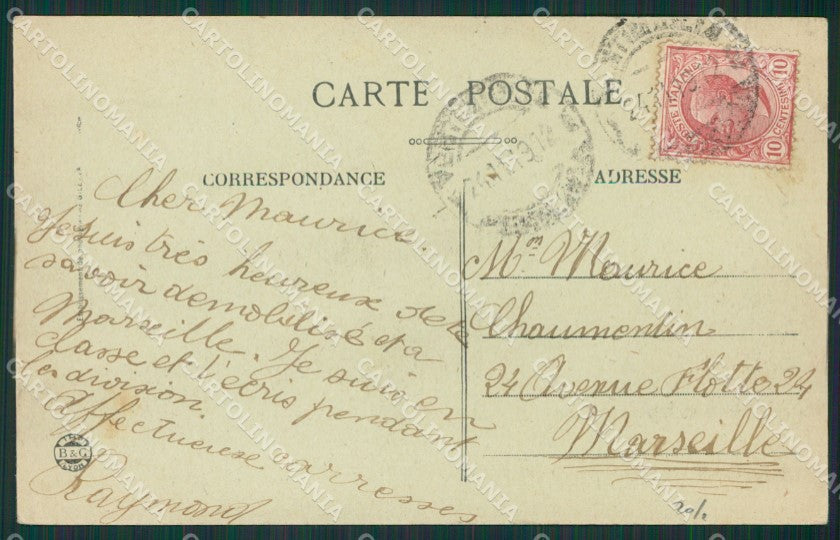 CARTE POSTALE
CORRESPONDANCE
Cher Maurice.
Je suis très heureux de te
savoir demobilisé et a
Marseille. Je suis en
classe et t'écris pendant
la division.
Affectueuse carresses
Raymond
B & G
LYON
ADRESSE
Mr Maurice
Chaumentin
24 Avenue Flotte 24
Marseille
POSTE ITALIANE
CENTESIMI 10
10
CARTOLINOMANIA